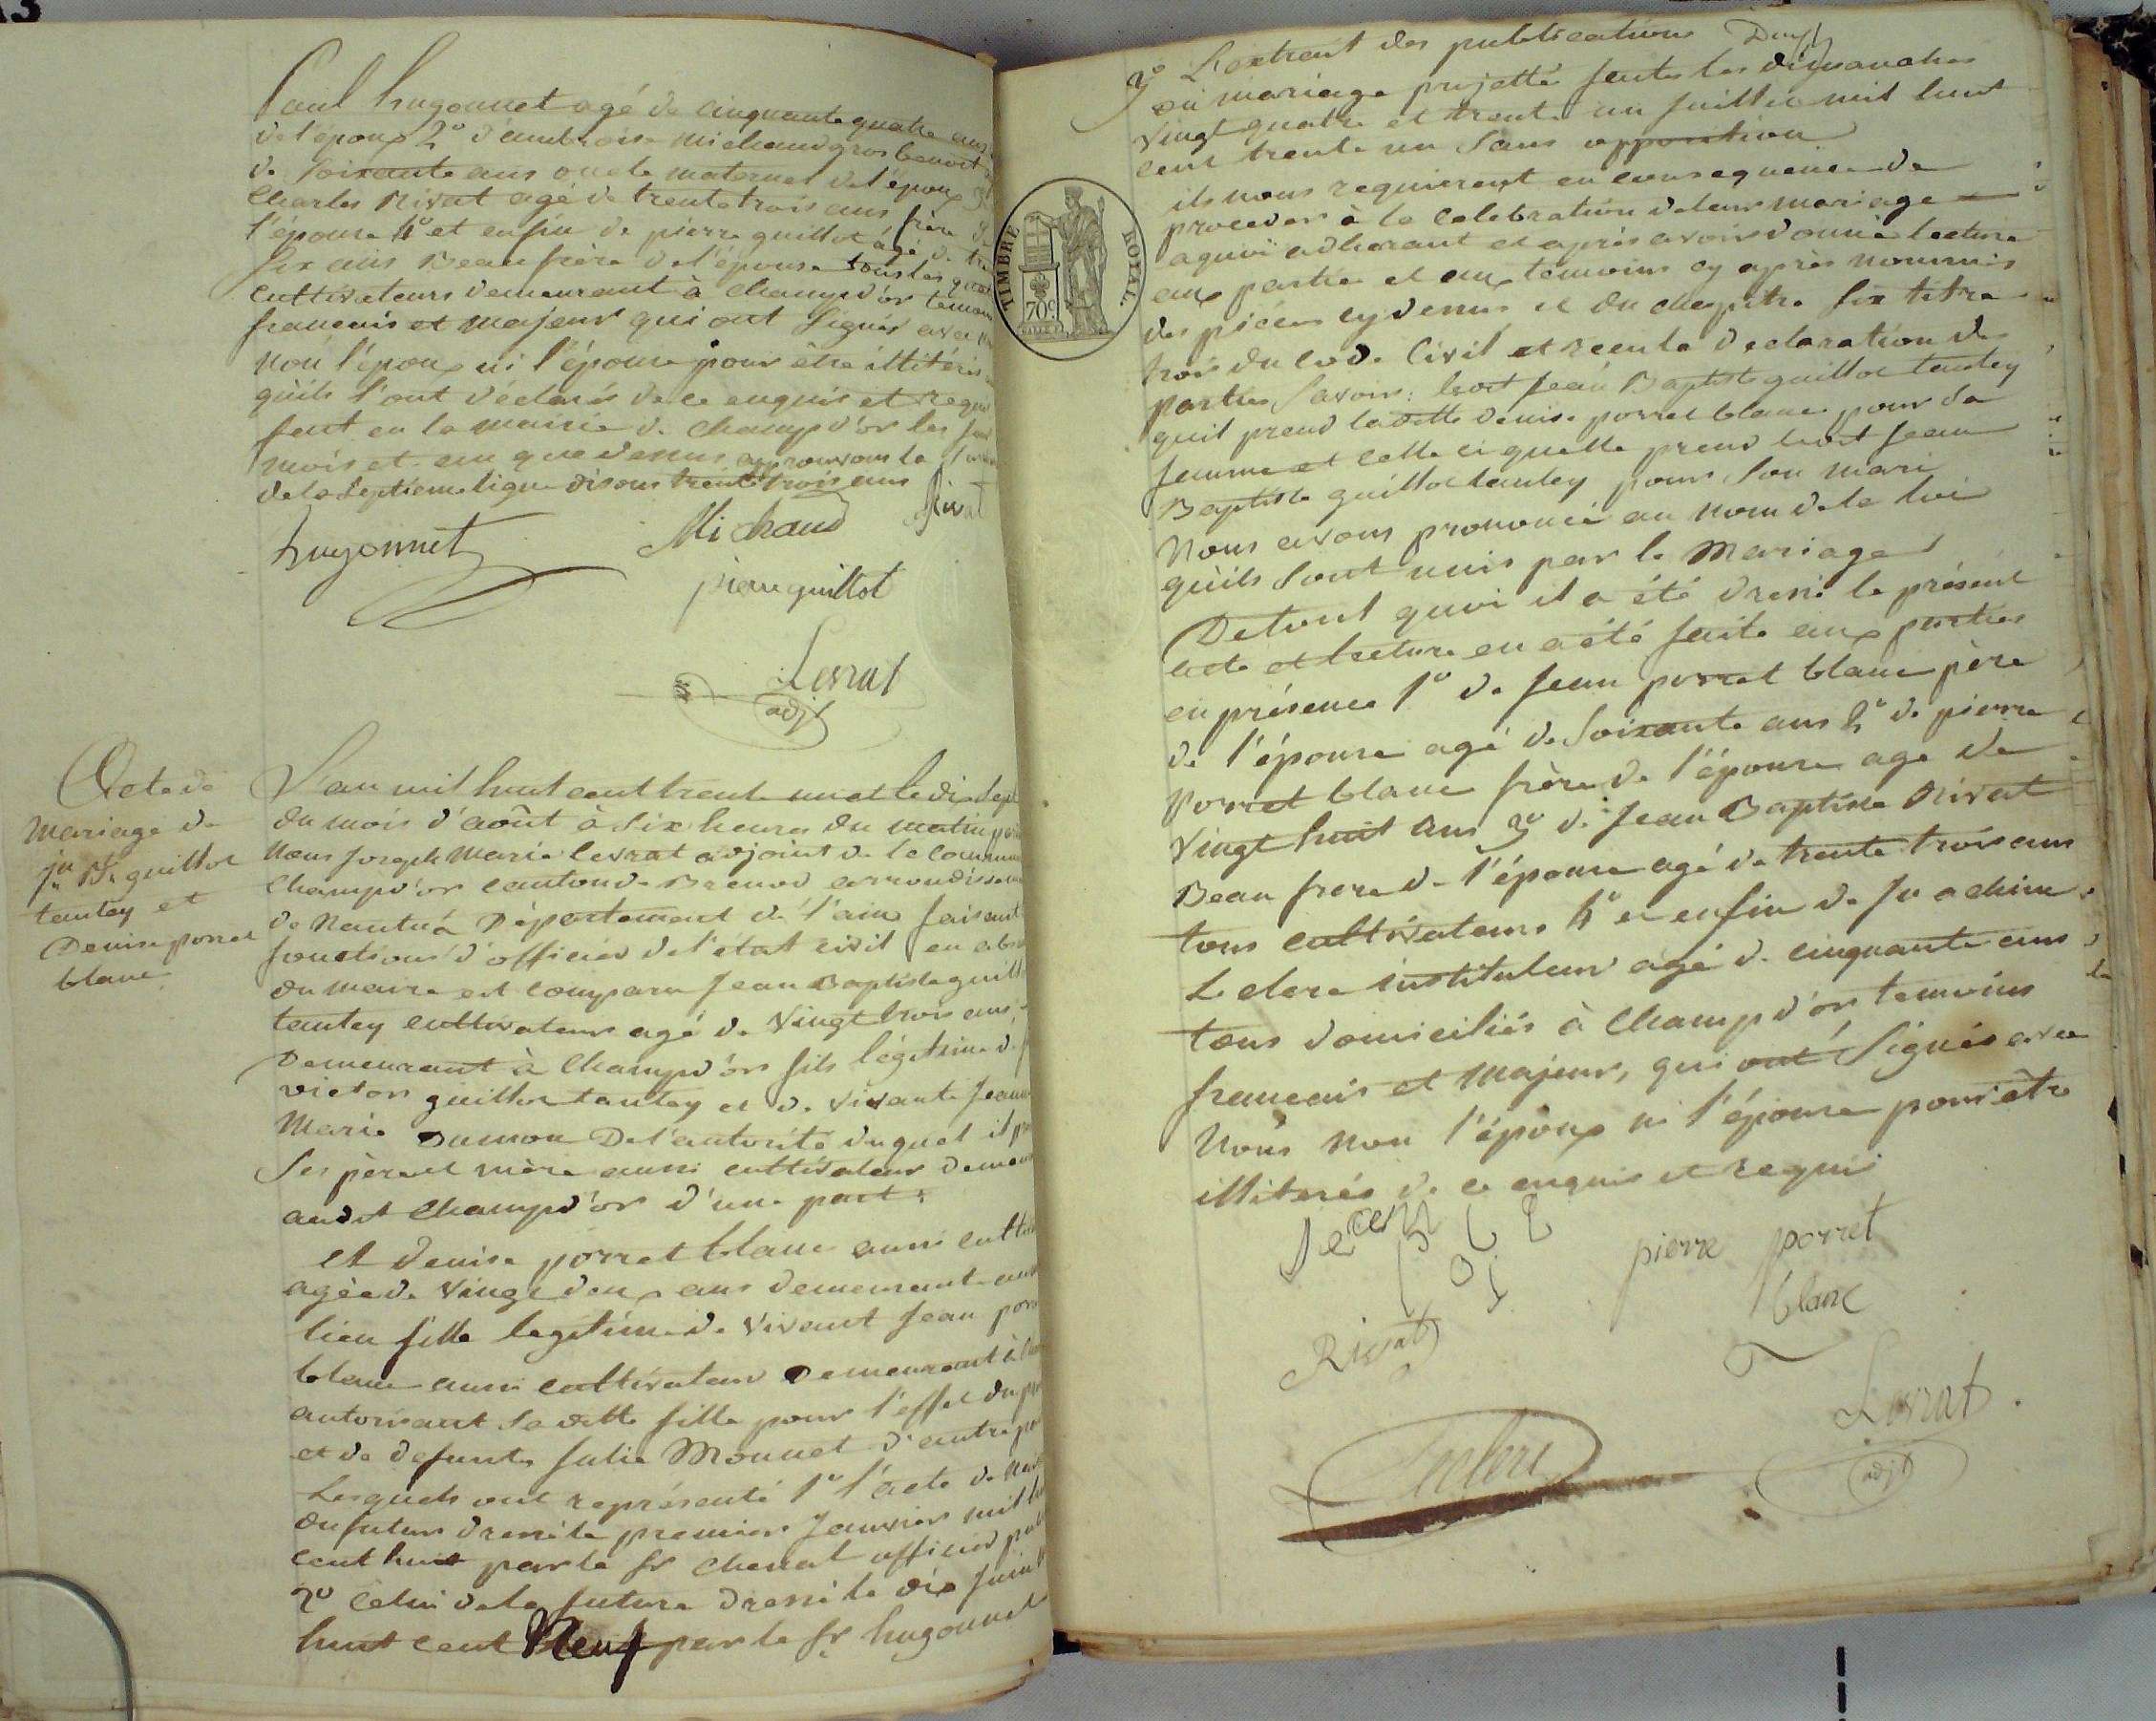 Paul hugonnet agé de cinquante quatre ans
de l'époux 2° d'ambroise michaud gros benoit
de Soixante ans oncle maternel de l'époux 3°
Charles Rivat agé de trente trois ans frère de
l'épouse 4° et enfin de pierre guillot agé de tre
six ans Beau frère de l'épouse tous les quat
cultivateurs demeurant à Champd'or temoins
francais et majeur qui ont Signés avec n
non l'époux ni l'épouse pour être illitérés
qu'ils l'ont déclarés de ce enquis et requis
fait en la mairie de Champd'or les jour
mois et an que dessus approuvons la
de la Septieme ligne disons trente trois ans
hugonnet Michaud Rivat
pierre guillot
Levrat
adjt
Acte de
mariage de
jn Bte guillot
tantey et
Denise porret
blanc
L'an mil huit cent trente un et le dix sept
du mois d'août à Six heures du matin par
Nous joseph Marie levrat adjoint de la commune
Champd'or canton de Brenod arrondissem
de Nantua Département de l'ain faisant
fonctions d'officier de l'état civil en abs
du maire est comparu Jean Baptiste guill
tantey cultivateur agé de Vingt trois ans,
Demeurant à Champd'or fils légitime de
victor guillot tantey et de vivante jeanne
Marie Dumon De l'autorité duquel il p
Ses père et mère aussi cultivateur demeu
audit Champd'or d'une part;
et denise porret blanc aussi culti
agée de Vingt deux ans demeurant au
lieu fille legitime de Vivant Jean porr
blanc aussi cultivateur Demeurant à
autorisant Sa ditte fille pour l'effet du p
et de defunte Julie Monnet d'autre par
Lesquels ont représenté 1° l'acte de nai
du futur dressé le premier Janvier mil h
cent huit par le Sr Chevat officier pub
2° Celui de la future dressé le dix Juin
huit cent Neuf par le Sr hugonnet
3° L'extrait des publications Dudt
du mariage projetté faites les dimanches
Vingt quatre et trente un juillet mil huit
cent trente un Sans opposition
ils nous requierent en consequence de
proceder à la celebration de leur mariage
aquoi adherant et après avoir donné lecture
aux parties et aux temoins cy après nommés
des pièces cy dessus et du chapitre Six titre
trois du Code Civil et recu la declaration des
parties Savoir: ledit Jean Baptiste guillot tantey
quil prend laditte denise porret blanc pour Sa
femme et cette ci quelle prend ledit Jean
Baptiste guillot tantey pour Son mari
Nous avons prononcé au nom de la loi
qu'ils Sont unis par le Mariage
De tout quoi il a été dressé le présent
acte et lecture en a été faite aux parties
en présence 1° de Jean porret blanc père
de l'épouse agé de Soixante ans 2° de pierre
Porret blanc frère de l'épouse agé de
Vingt huit ans 3° de Jean Baptiste Rivat
Beau frere de l'épouse agé de trente trois ans
tous cultivateurs 4° et enfin de Joachim
Leclerc instituteur agé de cinquante ans
tous domiciliés à Champd'or temoins
francais et majeurs, qui ont Signés avec
Nous non l'époux ni l'épouse pour être
illiterés de ce enquis et requis
pierre porret
blanc
Rivat
Leclerc
Levrat
adjt
TIMBRE ROYAL.
70c.